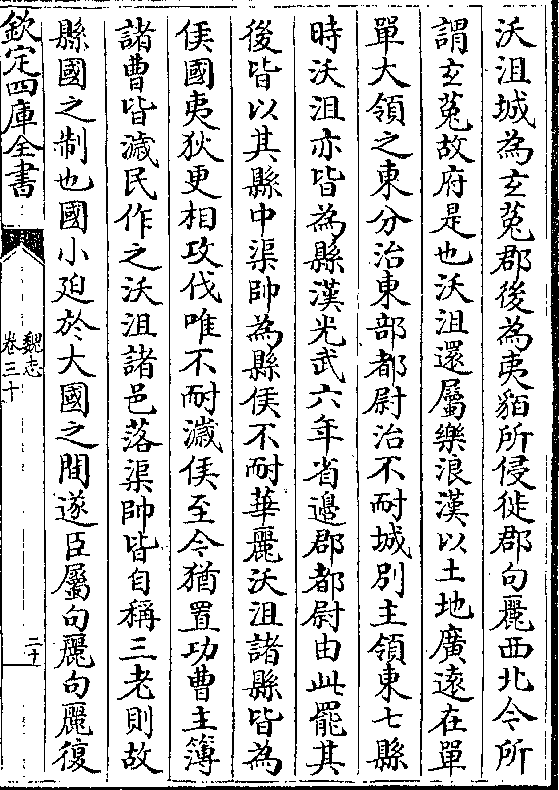 沃沮城為玄菟郡後為夷貊所侵徙郡句麗西北今所
謂玄菟故府是也沃沮還屬樂浪漢以土地廣遠在單
單大領之東分治東部都尉治不耐城別主領東七縣
時沃沮亦皆為縣漢光武六年省邊郡都尉由此罷其
後皆以其縣中渠帥為縣侯不耐華麗沃沮諸縣皆為
侯國夷狄更相攻伐唯不耐濊侯至今猶置功曹主簿
諸曹皆濊民作之沃沮諸邑落渠帥皆自稱三老則故
縣國之制也國小廹於大國之間遂臣屬句麗句麗復
欽定四庫全書
魏志
卷三十
二十